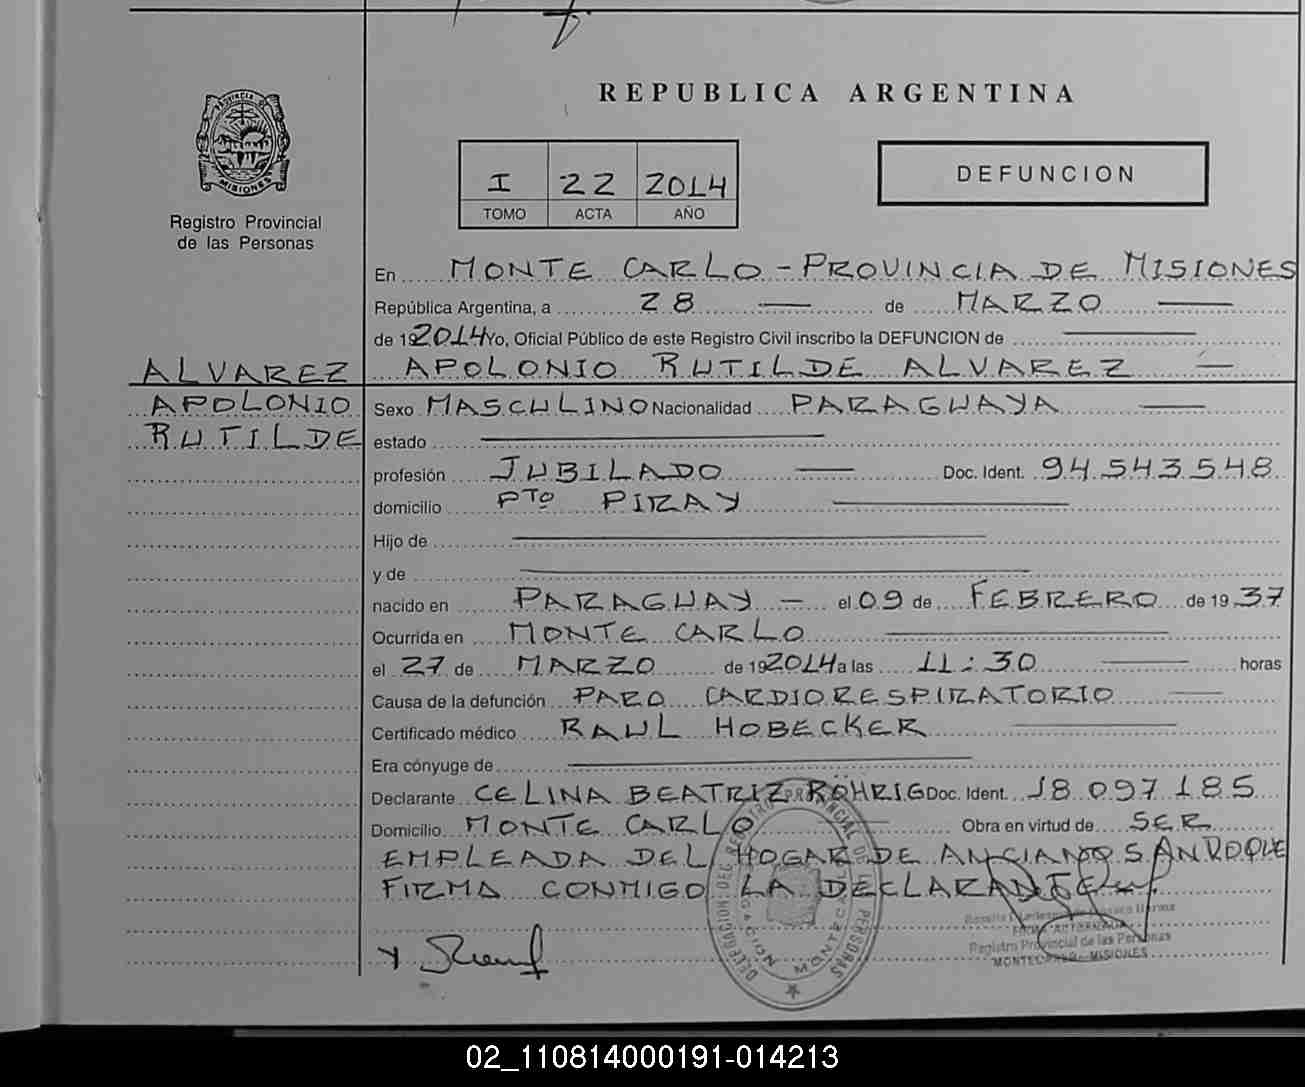 REPUBLICA ARGENTINA
PROVINCIA DE
MISIONES
Registro Provincial
de las Personas
I 22 2014
TOMO ACTA AÑO
DEFUNCION
En MONTE CARLO - PROVINCIA DE MISIONES
República Argentina, a 28 — de MARZO —
de 192014 Yo, Oficial Público de este Registro Civil inscribo la DEFUNCION de —
ALVAREZ APOLONIO RUTILDE ALVAREZ —
APOLONIO Sexo MASCULINO Nacionalidad PARAGUAYA —
RUTILDE estado —
profesión JUBILADO — Doc. Ident. 94.543.548
domicilio PTO PIRAY —
Hijo de —
y de —
nacido en PARAGUAY — el 09 de FEBRERO de 1937
Ocurrida en MONTE CARLO —
el 27 de MARZO de 192014 a las 11:30 — horas
Causa de la defunción PARO CARDIORESPIRATORIO —
Certificado médico RAUL HOBECKER —
Era cónyuge de —
Declarante CELINA BEATRIZ RÖHRIG Doc. Ident. 18.097.185
Domicilio MONTE CARLO — Obra en virtud de SER
EMPLEADA DEL HOGAR DE ANCIANO SANROQUE
FIRMA CONMIGO LA DECLARANTE
DELEGACION DEL REGISTRO PROVINCIAL DE LAS PERSONAS
DELEGACION MONTECARLO
FIRMA AUTORIZADA
Registro Provincial de las Personas
MONTECARLO - MISIONES
02_110814000191-014213